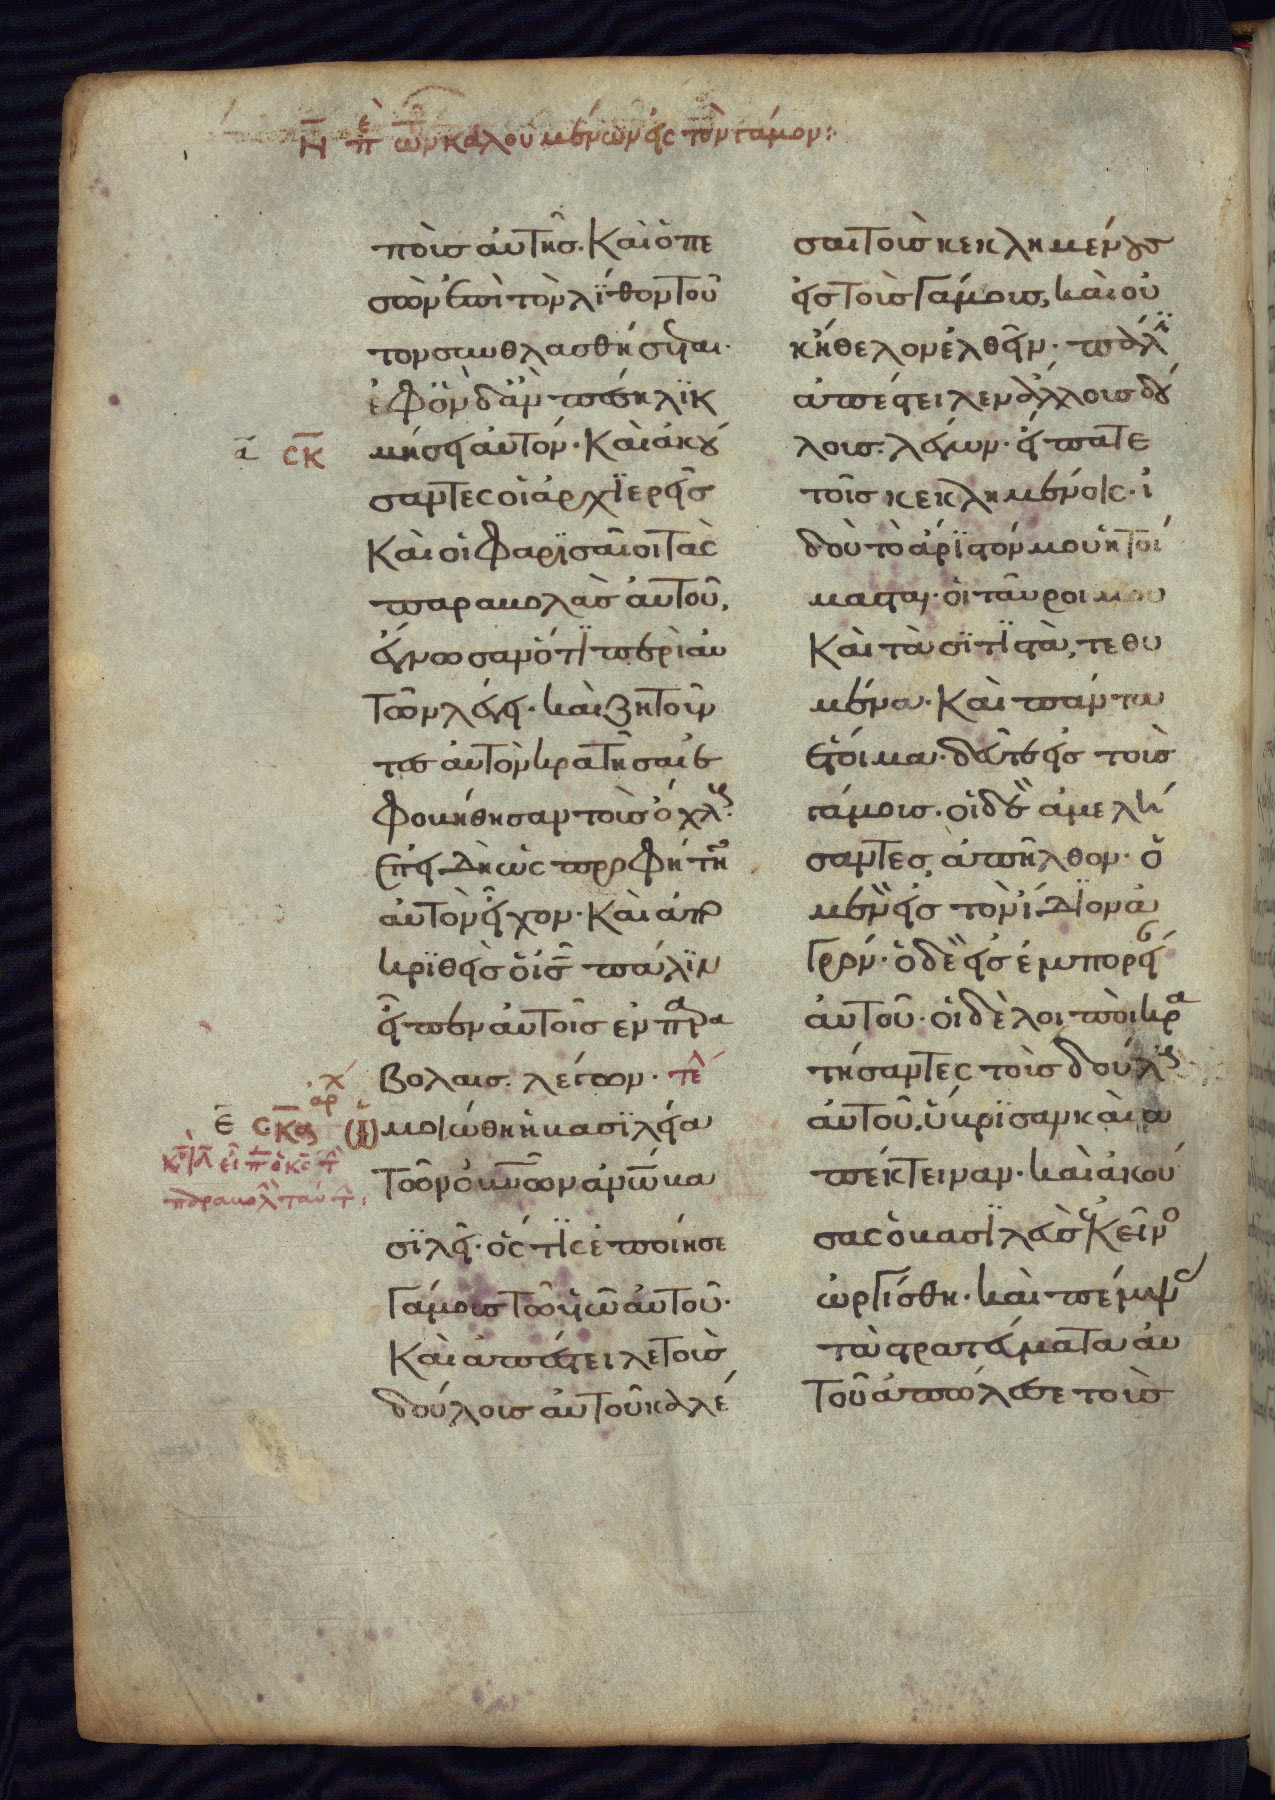 Ν̅Η̅ πε τῶν καλουμένων εἰς τὸν γάμον:
ποὺς αὐτῆς. Καὶ ὁ πε
σὼν ἐπὶ τὸν λίθον τοῦ
τον συνθλασθήσεται.
ἐφ ὃν δ ἂν πέση λικ
μήσει αὐτόν. Καὶ ἀκού
σαντες οἱ ἀρχϊερεῖς
Καὶ οἱ φαρϊσαῖοι τὰς
παραβολὰς αὐτοῦ,
ἔγνωσαν ὅτϊ περὶ αὐ
τῶν λέγει. καὶ ζητοῦν
τες αὐτὸν κρατῆσαι ἐ
φοβήθησαν τοὺς ὄχλους.
ἐπειδὴ ὡς προφήτην
αὐτὸν εἶχον. Καὶ ἀπο
κρϊθεὶς ὁ ις̅ πάλϊν
εἶπεν αὐτοῖς ἐν παρα
βολαις. λέγων. τε
ὡμοιώθη ἡ βασϊλεία
τῶν οὐνῶν ἀνω̅ βα
σϊλεῖ. ὅς τϊς ἐποίησε
Γάμους τῶ υἱῶ αὐτοῦ.
Καὶ ἀπέστειλε τοὺς
δούλους αὐτοῦ καλέ
σαι τοὺς κεκλημένους
εἰς τοὺς Γάμους, καὶ οὐ
κ ἤθελον ἐλθεῖν. πάλϊ
ἀπέστειλεν ἄλλους δού
λους. λέγων. εἴπατε
τοῖς κεκλημένοις. ἰ
δοὺ τὸ ἄρϊστόν μου ἡτοί
μασται. οἱ ταῦροι μου
Καὶ τὰ σϊτϊστὰ, τεθυ
μένα. Καὶ πάντα
ἕτοιμα. δεῦτε εἰς τοὺς
γάμους. οἱ δὲ ἀμελή
σαντες, ἀπῆλθον. ὁ
μὲν εἰς τὸν ἴδϊον ἀ
Γρόν. ὁ δὲ εἰς ἐμπορεί
αὐτοῦ. οἱ δὲ λοιποὶ κρα
τήσαντες τοὺς δούλους
αὐτοῦ, ὕβρϊσαν καὶ ἀ
πέκτειναν. καὶ ἀκού
σας ὁ βασϊλεὺς ἐκεῖνο
ὠργίσθη. καὶ πέμψ
τὰ στρατεύματα αὐ
τοῦ ἀπώλεσε τοὺς
σ̅κ̅
ε̅ σ̅κ̅α̅